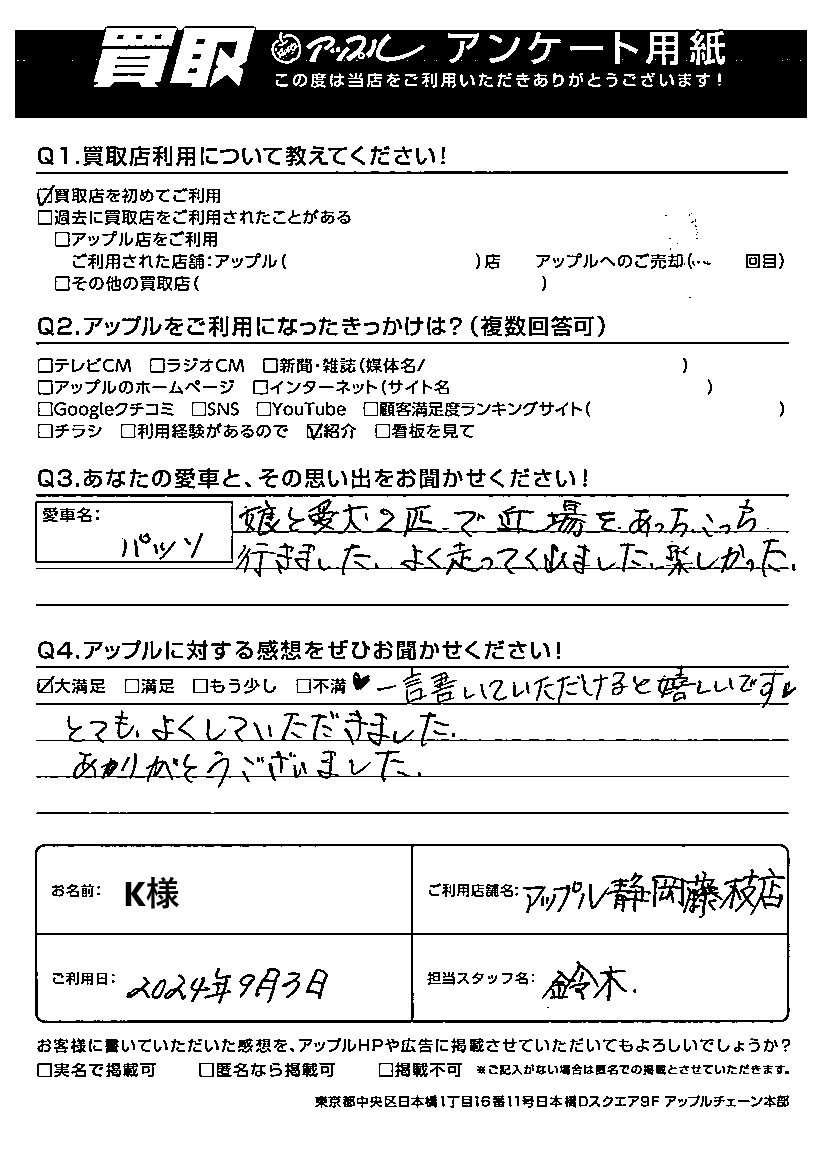 買取 アップル アンケート用紙
この度は当店をご利用いただきありがとうございます!
Q1.買取店利用について教えてください!
☑買取店を初めてご利用
□過去に買取店をご利用されたことがある
□アップル店をご利用
ご利用された店舗:アップル( )店 アップルへのご売却( 回目)
□その他の買取店( )
Q2.アップルをご利用になったきっかけは?(複数回答可)
□テレビCM □ラジオCM □新聞・雑誌(媒体名/ )
□アップルのホームページ □インターネット(サイト名 )
□Googleクチコミ □SNS □YouTube □顧客満足度ランキングサイト( )
□チラシ □利用経験があるので ☑紹介 □看板を見て
Q3.あなたの愛車と、その思い出をお聞かせください!
愛車名: パッソ
娘と愛犬2匹で近場をあっちこっち
行きました。よく走ってくれました。楽しかった。
Q4.アップルに対する感想をぜひお聞かせください!
☑大満足 □満足 □もう少し □不満 ♥一言書いていただけると嬉しいです♥
とても、よくしていただきました。
ありがとうございました。
お名前: K様 ご利用店舗名: アップル静岡藤枝店
ご利用日: 2024年9月3日 担当スタッフ名: 鈴木.
お客様に書いていただいた感想を、アップルHPや広告に掲載させていただいてもよろしいでしょうか?
□実名で掲載可 □匿名なら掲載可 □掲載不可 ※ご記入がない場合は匿名での掲載とさせていただきます。
東京都中央区日本橋1丁目16番11号日本橋Dスクエア9F アップルチェーン本部